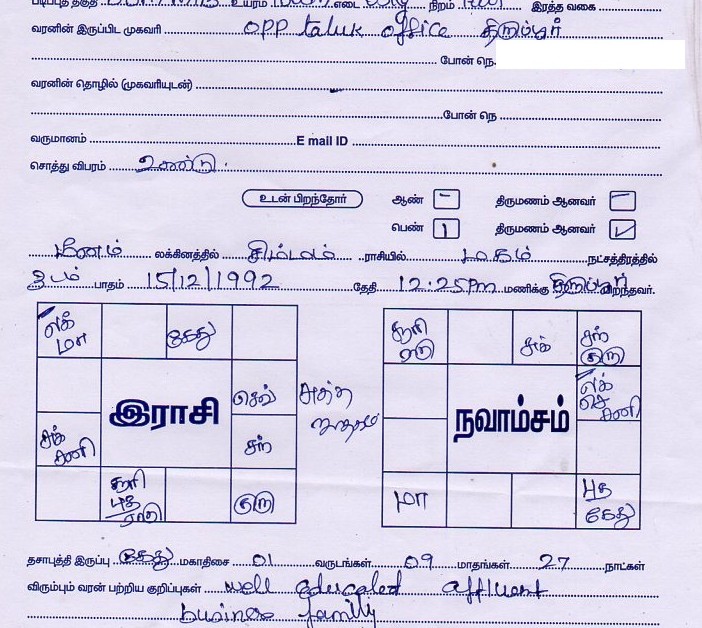 படிப்புத் தகுதி உயரம் எடை நிறம் இரத்த வகை
வரனின் இருப்பிட முகவரி opp taluk office திருப்பூர்
போன் நெ.
வரனின் தொழில் (முகவரியுடன்)
போன் நெ
வருமானம் E mail ID
சொத்து விபரம் உண்டு.
உடன் பிறந்தோர் ஆண் - திருமணம் ஆனவர் -
பெண் 1 திருமணம் ஆனவர் ✓
மீனம் லக்கினத்தில் சிம்மம் ராசியில் மகம் நட்சத்திரத்தில்
3ம் பாதம் 15/12/1992 தேதி 12.25pm மணிக்கு திருப்பூர் பிறந்தவர்.
லக் மா கேது
செவ்
சுக் சனி சந்
சூரி புத ராகு குரு
இராசி
சூரி ராகு சுக் சந் குரு
லக் செ சனி
மா புத கேது
நவாம்சம்
தசாபுத்தி இருப்பு கேது மகாதிசை 01 வருடங்கள் 09 மாதங்கள் 27 நாட்கள்
விரும்பும் வரன் பற்றிய குறிப்புகள் well educated affluent
business family